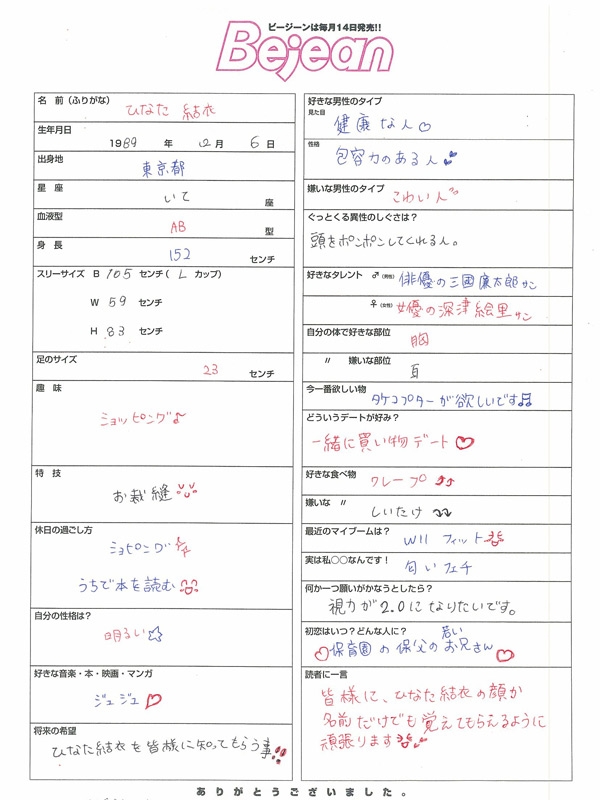 ビージーンは毎月14日発売!!
Bejean
名 前(ふりがな)
ひなた 結衣
生年月日
1989 年 12 月 6 日
出身地
東京都
星 座
いて 座
血液型
AB 型
身 長
152 センチ
スリーサイズ B 105 センチ( L カップ)
W 59 センチ
H 83 センチ
足のサイズ
23 センチ
趣 味
ショッピング♪
特 技
お裁縫
休日の過ごし方
ショピング
うちで本を読む
自分の性格は?
明るい☆
好きな音楽・本・映画・マンガ
ジュジュ♡
将来の希望
ひなた結衣を皆様に知ってもらう事!!
好きな男性のタイプ
見た目
健康な人♡
性格
包容力のある人
嫌いな男性のタイプ
こわい人
ぐっとくる異性のしぐさは?
頭をポンポンしてくれる人。
好きなタレント ♂(男性) 俳優の三國廉太郎サン
♀(女性) 女優の深津絵里サン
自分の体で好きな部位
胸
〃 嫌いな部位
今一番欲しい物
タケコプターが欲しいです♫
どういうデートが好み?
一緒に買い物デート♡
好きな食べ物
クレープ
嫌いな 〃
しいたけ
最近のマイブームは?
WII フィット
実は私○○なんです!
匂いフェチ
何か一つ願いがかなうとしたら?
視力が2.0になりたいです。
初恋はいつ?どんな人に?
♡保育園の保父の若いお兄さん♡
読者に一言
皆様に、ひなた結衣の顔か
名前だけでも覚えてもらえるように
頑張ります
ありがとうございました。